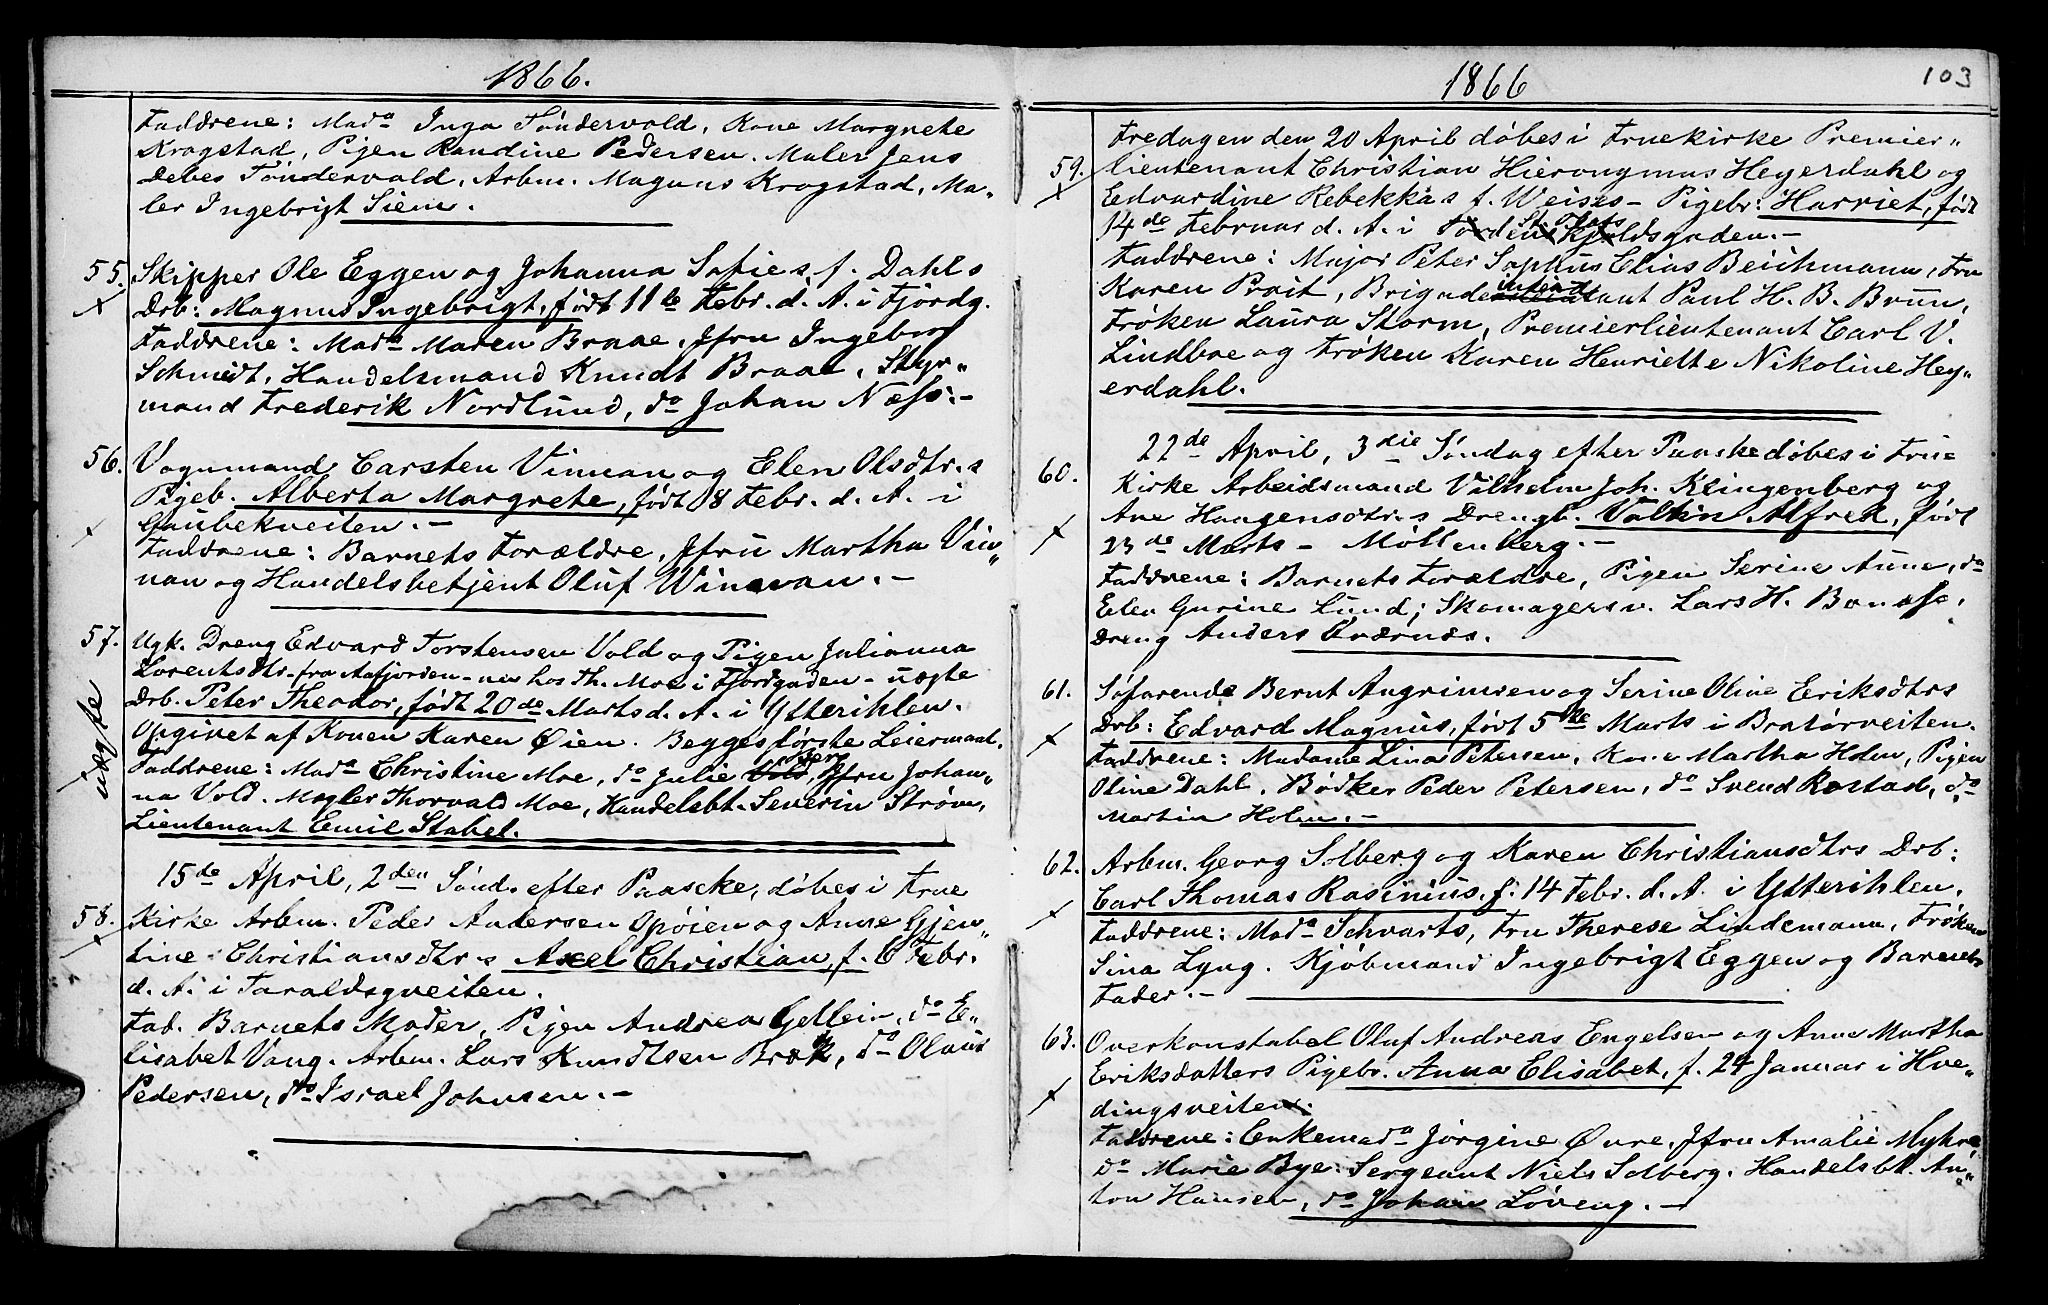 1866.
Faddrene: Mada Inga Töndervold, Kone Margrete
Kragstad, Pigen Randine Pedersen. Maler Jens
Debes Töndervold, Arbm. Magnus Kragstad, Ma-
ler Ingebrigt Siem.
55. Skipper Ole Eggen og Johanna Sofie s f. Dahls
Drb: Magnus Ingebrigt, födt 11te Febr. d. A. i Fjordg.
Faddrene: Mada Maren Braae, Jfru Ingeborg
Schmidt, Handelsmand Knudt Braae, Styr-
mand Frederik Nordlund, do Johan Næss.-
56. Vognmand Carsten Vinnan og Elen Olsdtr.s
Pigeb. Alberta Margrete, födt 8 Febr. d. A. i
Gaubekveiten.-
Faddrene: Barnets Forældre, Jfru Martha Vin-
nan og Handelsbetjent Oluf Winnan.-
57. Ugk. Dreng Edvard Torstensen Vold og Pigen Julianna
Lorentsdtr. fra Aafjorden - nu hos Th. Moe i Fjordgaden - uægte
uægte
Drb. Peter Theodor, födt 20de Marts d. A. i Ytterihlen.
Opgivet af Konen Karen Øien. Begges förste Leiermaal.
Faddrene: Mada Christine Moe, do Julie Vold, Jfru Johan-
na Vold. Mægler Thorvald Moe, Handelsbt. Severin Ström,
Lieutenant Emil Stabel.
15de April, 2den Sönd. efter Paaske, döbes i Frue
58. Kirke Arbm. Peder Andersen Opöien og Anne Gjer-
tine Christiansdtr.s Axel Christian, f. 6 Febr.
d. A. i Taraldsgveiten.
Fad. Barnets Moder, Pigen Andrea Gellein, do E-
lisabet Vang. Arbm. Lars Knudtsen Bræk, do Olaus
Pedersen, do Israel Johnsen.-
1866
103
Fredagen den 20 April döbes i Fruekirke Premier-
59. lieutenant Christian Hieronymus Heyerdahl og
Edvardine Rebekka s f. Weises - Pigebr: Harriet, födt
14de Februar d. A. i Tordenskjoldsgaden.- St. Olafs
Faddrene: Major Peter Sophus Elias Beichmann, Fru
Karen Prait, Brigadeintendant Paul H. B. Brun,
Fröken Laura Storm, Premierlieutenant Carl V.
Lindboe og Fröken Karen Henriette Nikoline Hey-
erdahl.
22de April, 3die Söndag efter Paaske döbes i Frue
60. Kirke Arbeidsmand Vilhelm Joh. Klingenberg og
Ane Haagensdtr.s Drengb. Valkin Alfred, födt
23de Marts - Möllenberg.-
Faddrene: Barnets Forældre, Pigen Serine Aune, do
Elen Gurine Lund; Skomagersv. Lars H. Bonæss,
Dreng Anders Qværnes.
61. Söfarende Bernt Angrimsen og Serine Oline Eriksdtrs
Drb: Edvard Magnus, födt 5te Marts i Bratörveiten.
Faddrene: Madame Lina Petersen, Kone Martha Holm, Pigen
Oline Dahl. Bödker Peder Petersen, do Svend Rostad, do
Martin Holm.-
62. Arbm. Georg Solberg og Karen Christiansdtrs Drb:
Carl Thomas Rasinius, f: 14 Febr. d. A. i Ytterihlen.
Faddrene: Mada Schvarts, Fru Therese Lindemann, Fröken
Sina Lyng. Kjöbmand Ingebrigt Eggen og Barnets
Fader.-
63. Overkonstabel Oluf Andreas Engelsen og Anne Martha
Eriksdatters Pigebr. Anna Elisabet, f. 24 Januar i Hve-
dingsveiten.
Faddrene: Enkemada Jörgine Øvre, Jfru Amalie Myhre
do Marie Bye. Sergeant Niels Solberg. Handelsbt. An-
ton Hansen, do Johan Löveng.-